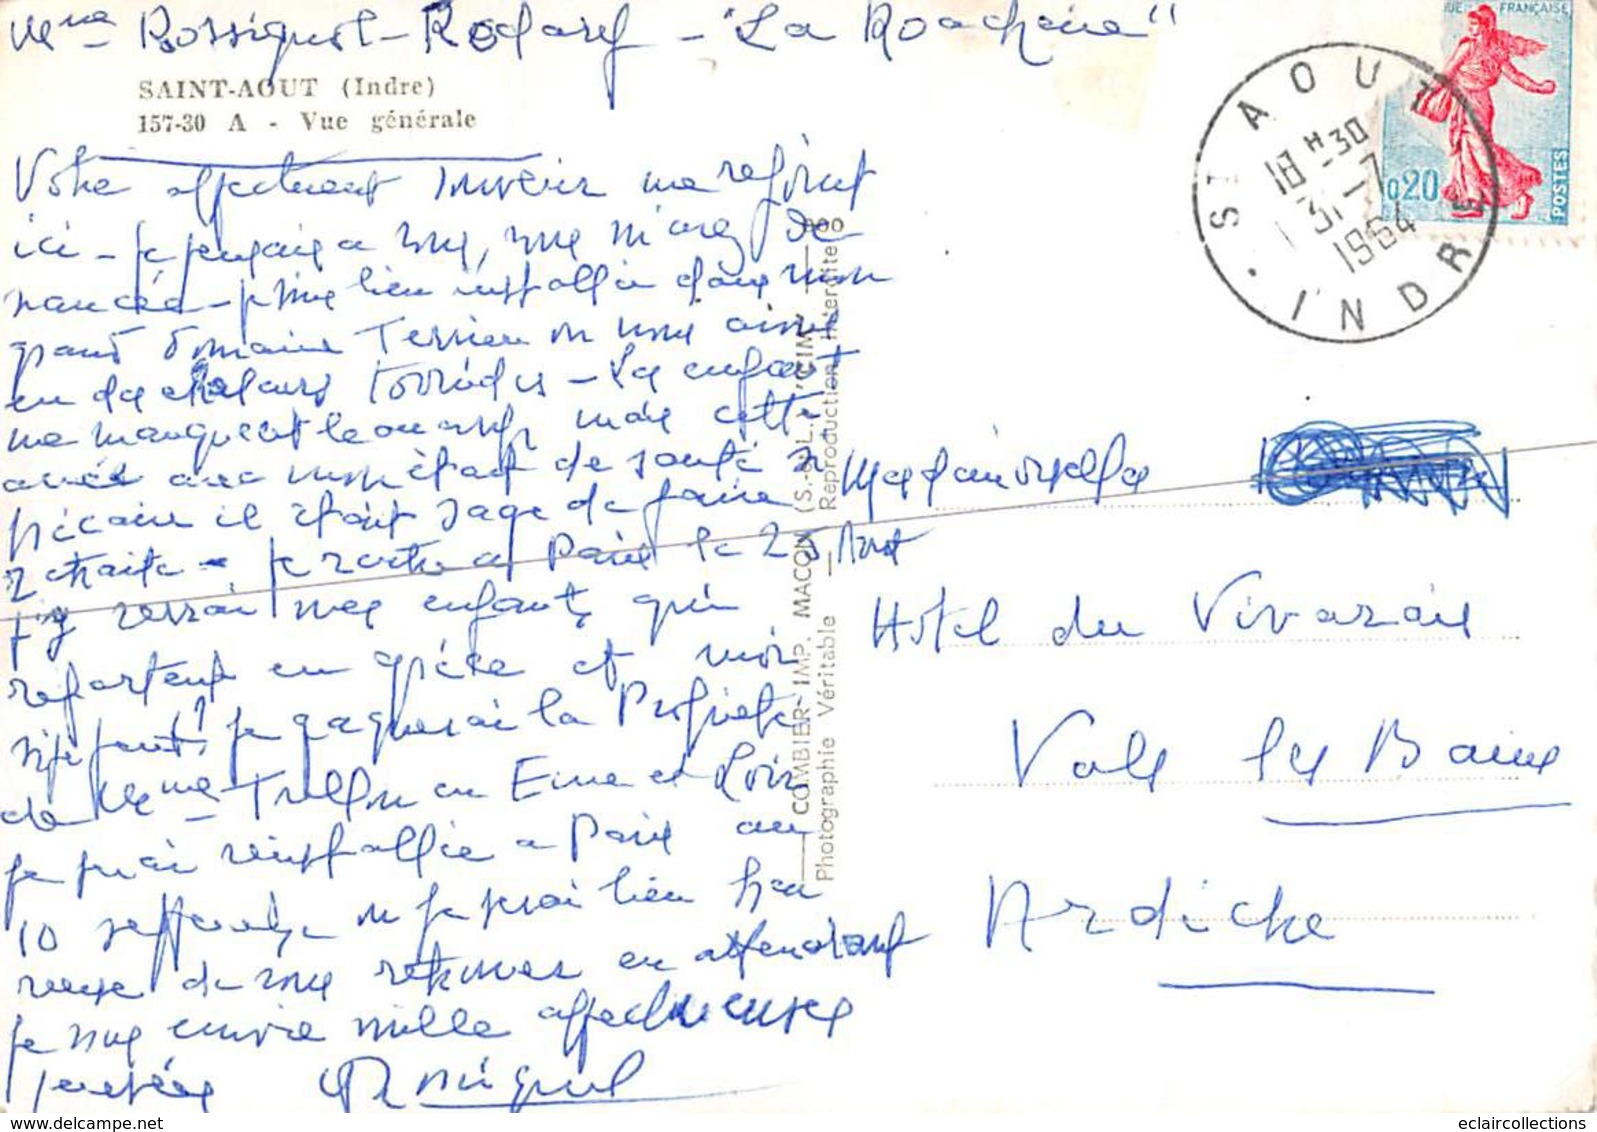 Mme Rossignol-Rodary - "La Roacheire"
SAINT-AOUT (Indre)
157-30 A - Vue générale
Votre affectueux souvenir me rejoint
ici - je pensais à vous, vous m'avez de
vancée - je suis bien installée dans mon
grand domaine Terrien on nous aime
en des chaleurs torrides - Les enfants
me manquent beaucoup mais cette
année avec mon état de santé si
précaire il était sage de faire
retraite - je rentre à Paris le 25 Août
j'y verrai mes enfants qui
repartent en Grèce et moi
je gagnerai la Propriété
de Mme en Eure et Loir
je serai réinstallée à Paris au
10 septembre où je serai bien heu
reuse de vous retrouver en attendant
je vous envoie mille affectueuses
pensées Rossignol
COMBIER IMP. MACON (S.-&-L.) "CIM"
Photographie Véritable — Reproduction Interdite
Mesdemoiselles
Hôtel du Vivarais
Vals les Bains
Ardèche
ST AOUT
18 H 30
31 - 7
1964
INDRE
FRANÇAISE
0,20
POSTES
eclaircollections